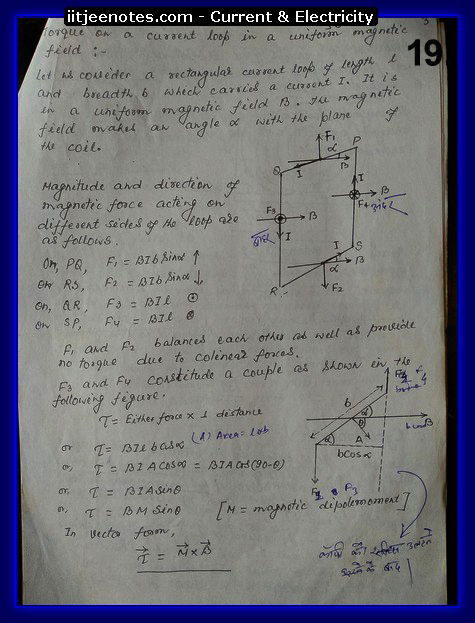 iitjeenotes.com - Current & Electricity
19
Torque on a current loop in a uniform magnetic
field :-
Let us consider a rectangular current loop of length l
and breadth b which carries a current I. It is
in a uniform magnetic field B. The magnetic
field makes an angle α with the plane of
the coil.
Magnitude and direction of
magnetic force acting on
different sides of the loop are
as follows.
On, PQ, F1 = BIb Sinα ↑
On RS, F2 = BIb Sinα ↓
On, QR, F3 = BIl ⊙
On SP, F4 = BIl ⊗
F1
P
α
Q
I
B
F3
B
I
F4
B
I
S
α
B
R
F2
F1 and F2 balances each other as well as provide
no torque due to colinear forces.
F3 and F4 constitude a couple as shown in the
following figure.
τ = Either force × ⊥ distance
or τ = BIl b cosα (A) Area = lb
or, τ = BIA Cosα = BIA Cos(90-θ)
or, τ = BIA Sinθ
or, τ = BM Sinθ [M = magnetic dipole moment]
In vector form,
τ⃗ = M⃗ × B⃗
b
α
θ
B
α
A
b Cosα